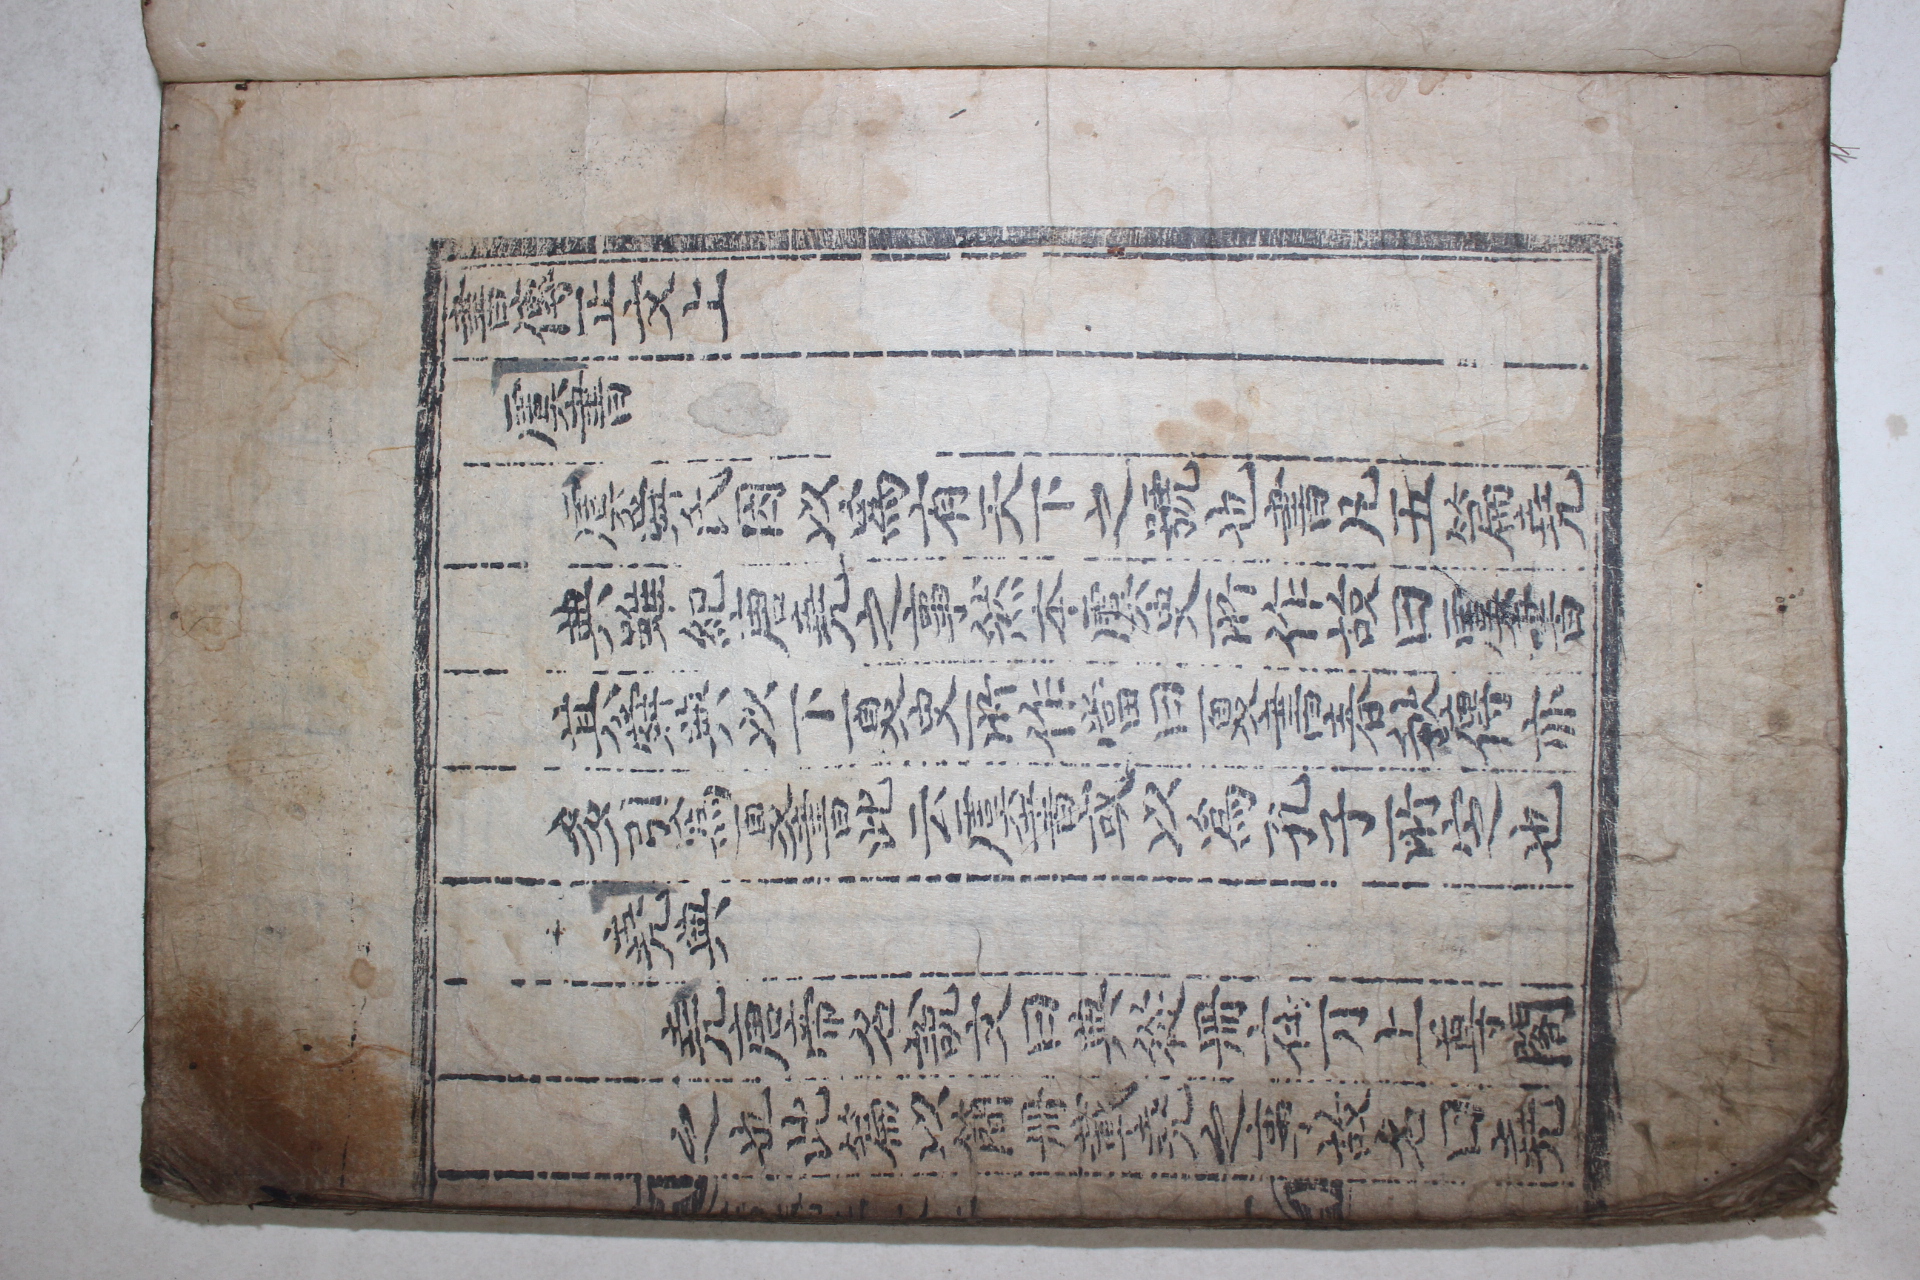 書傳正文上
虞書
虞舜氏因以爲有天下之號也書凡五篇堯
典雖紀唐堯之事然本虞史所作故曰虞書
其舜典以下夏史所作當曰夏書春秋傳亦
多引爲夏書此云虞書或以爲孔子所定也
堯典
堯唐帝名說文曰典從冊在丌上尊閣
之也此篇以簡冊載堯之事故名曰堯